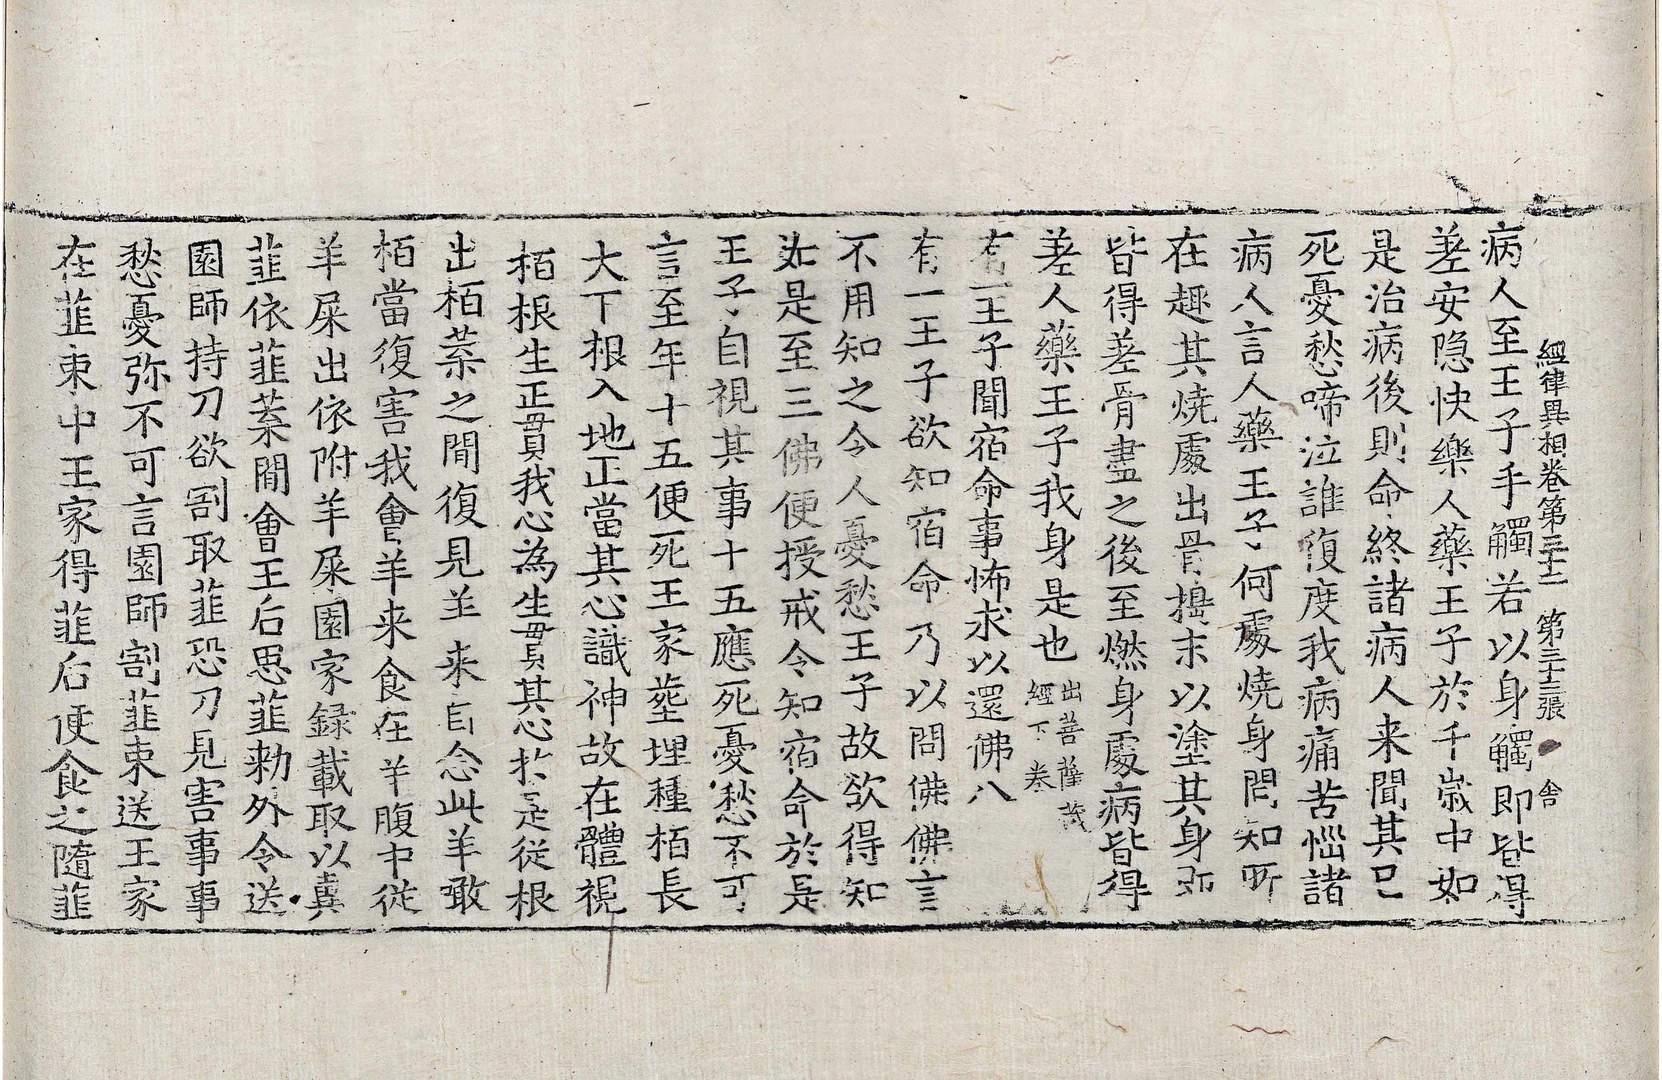 經律異相卷第三十二　第三十三張　舍
病人至王子手觸若以身觸即皆得
差安隐快樂人藥王子於千歳中如
是治病後則命終諸病人来聞其已
死憂愁啼泣誰復度我病痛苦惱諸
病人言人藥王子何處燒身問知所
在趣其燒處出骨搗末以塗其身即
皆得差骨盡之後至燃身處病皆得
差人藥王子我身是也
出菩薩藏
經下卷
有一王子聞宿命事怖求以還佛八
有一王子欲知宿命乃以問佛佛言
不用知之令人憂愁王子故欲得知
如是至三佛便授戒令知宿命於是
王子自視其事十五應死憂愁不可
言至年十五便死王家塟埋種栢長
大下根入地正當其心識神故在體視
栢根生正貫我心為生貫其心於是從根
出栢葉之間復見羊来自念此羊噉
栢當復害我會羊来食在羊腹中從
羊屎出依附羊屎園家録載取以糞
韮依韮葉間會王后思韮勑外令送
園師持刀欲割取韮恐刀見害事事
愁憂弥不可言園師割韮束送王家
在韮束中王家得韮后便食之隨韮